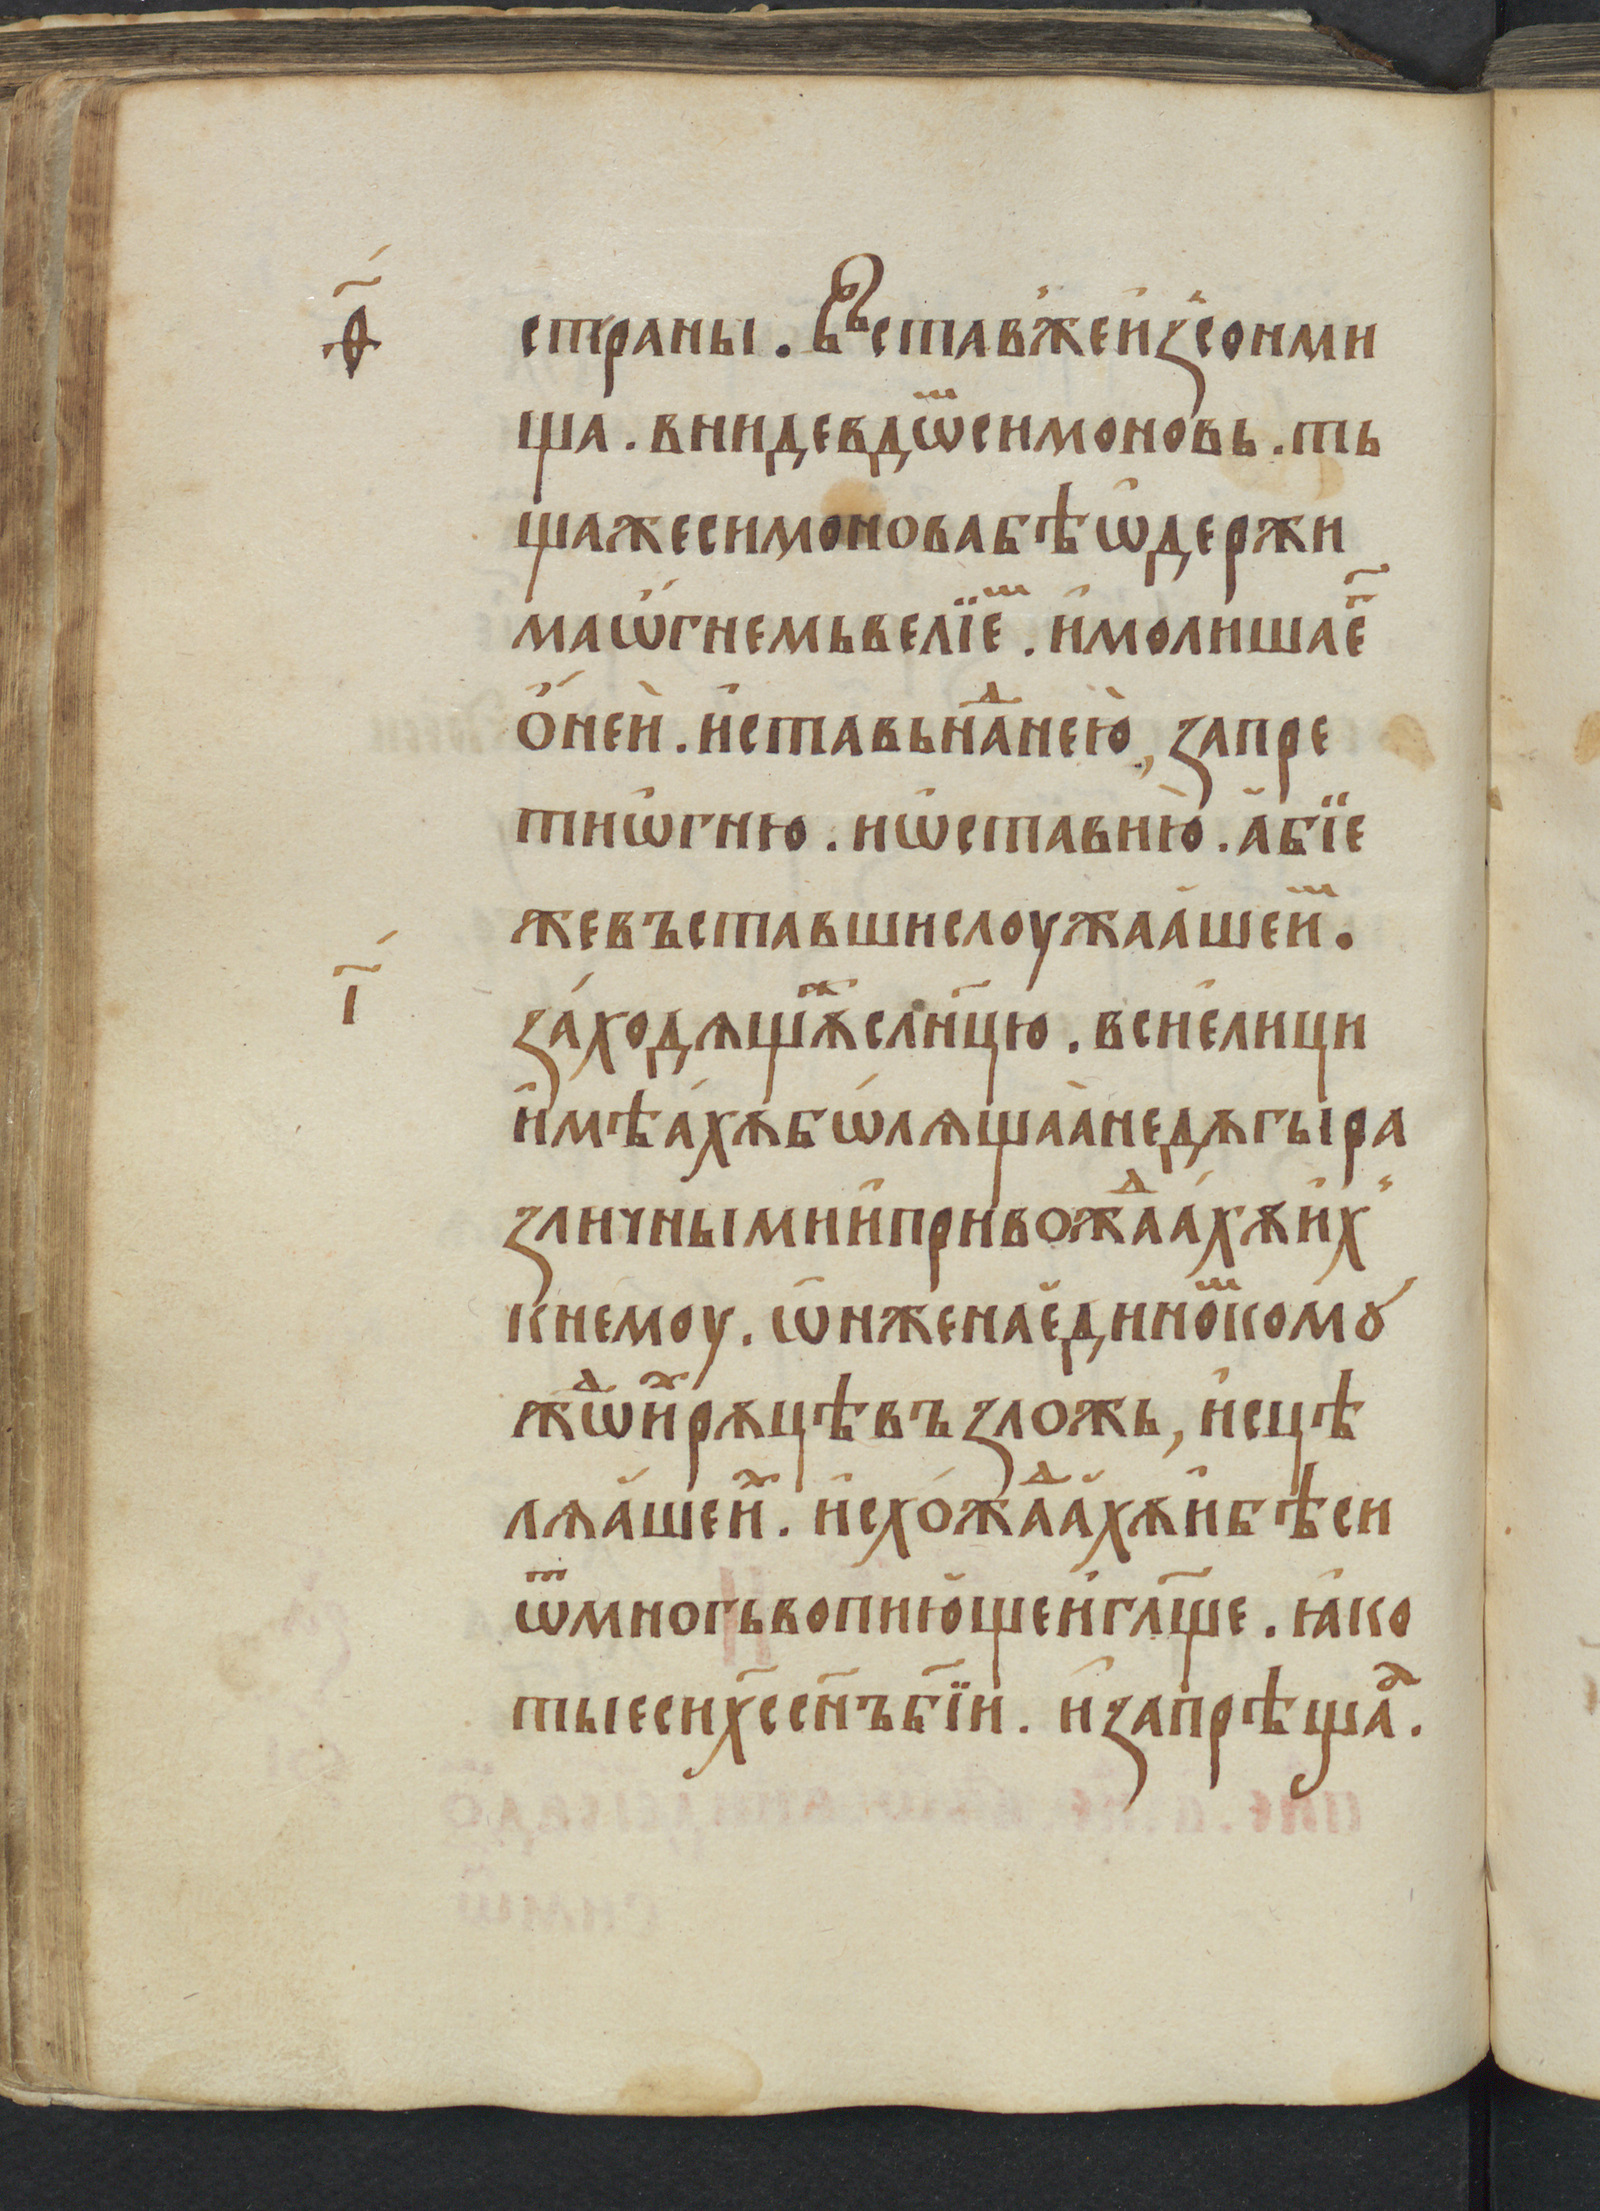 ѳ҃
страны. Въставже҆и҆зсонми
ща. внидевдѡⷨсимоновь. ть
щажесимоновабѣѡ҆держи
маѡ҆гнемьвелїеⷨ. и҆молишае҃
ѻ҆не́й. и҆ставьнаⷣне́ю, запре
тиѡ҆гню. иѡ҆ставию̀. а҆бїе
жевъставшислоужаа҆шеиⷨ.
і҃
за́ходѧщꙋⷤсл҃нцю. всие҆лици
и҆мѣа́хѫбѡ́лѧщаѧ҆недѫгыра
зличнымии҆привожⷣаа́хѫи҆х
кне́моу. ѡ҆нженае҆диноⷨкомꙋ
жⷣѡи҆ⷯрѫцѣвъзложь, и҆сцѣ
лѧа҆шеиⷯ. и҆схо́жⷣаа҆хѫи҆бѣси
ѿмногьвопию҆щеи҆гл҃ще. ꙗ҆ко
тыесих҃ссн҃ъбж҃їи. и҆запрѣщаⷶ.